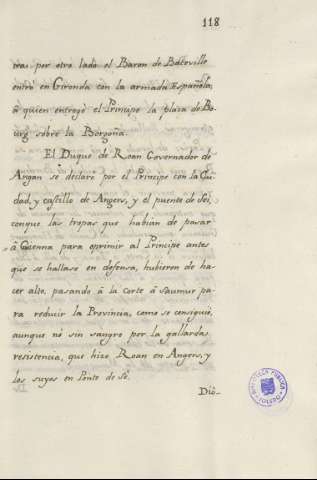 118
tra; por otro lado el Baron de Batoville
entró en Gironda con la armada Española,
á quien entregó el Principe la plaza de Bo-
urg sobre la Borgoña.
El Duque de Roan Governador de
Angau se declaró por el Principe con la Ciu-
dad, y castillo de Angers, y el puente de Sei,
conque las tropas que habian de pasar
á Guenna para oprimir al Principe antes
que se hallase en defensa, hubieron de ha-
cer alto, pasando á la Corte á Saumur pa-
ra reducir la Provincia, como se consiguió,
aunque no sin sangre por la gallarda
resistencia, que hizo Roan en Angers, y
los suyos en Ponte de Sé.
Dió-
BIBLIOTECA PUBLICA